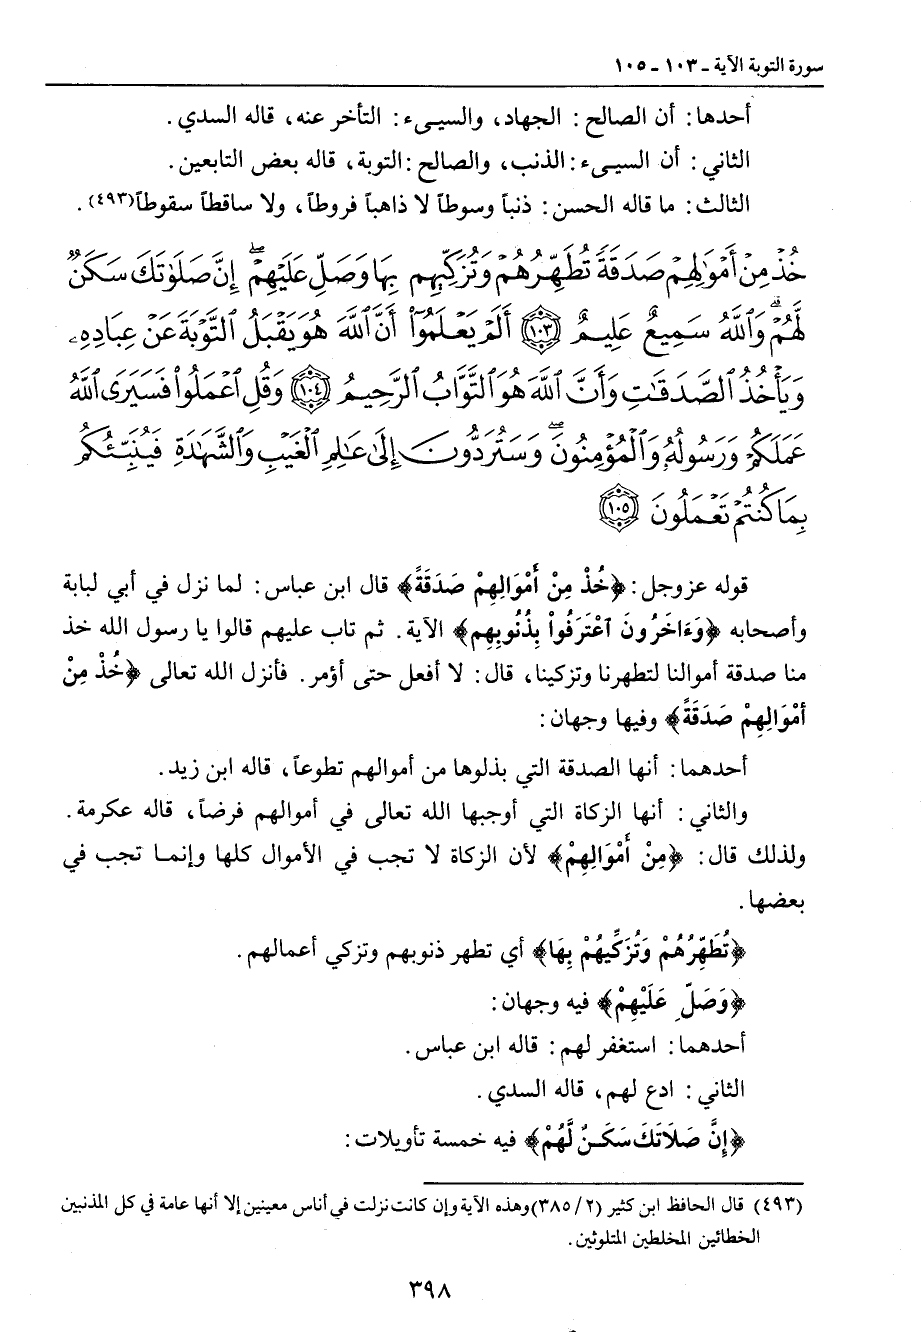 سورة التوبة الآية ـ ١٠٣ ـ ١٠٥
أحدها: أن الصالح: الجهاد، والسيىء: التأخر عنه، قاله السدي.
الثاني: أن السيىء: الذنب، والصالح: التوبة، قاله بعض التابعين.
الثالث: ما قاله الحسن: ذنباً وسوطاً لا ذاهباً فروطاً، ولا ساقطاً سقوطاً(٤٩٣).
خُذْ مِنْ أَمْوَٰلِهِمْ صَدَقَةً تُطَهِّرُهُمْ وَتُزَكِّيهِم بِهَا وَصَلِّ عَلَيْهِمْ ۖ إِنَّ صَلَوٰتَكَ سَكَنٌ
لَّهُمْ ۗ وَٱللَّهُ سَمِيعٌ عَلِيمٌ ١٠٣ أَلَمْ يَعْلَمُوٓا۟ أَنَّ ٱللَّهَ هُوَ يَقْبَلُ ٱلتَّوْبَةَ عَنْ عِبَادِهِۦ
وَيَأْخُذُ ٱلصَّدَقَٰتِ وَأَنَّ ٱللَّهَ هُوَ ٱلتَّوَّابُ ٱلرَّحِيمُ ١٠٤ وَقُلِ ٱعْمَلُوا۟ فَسَيَرَى ٱللَّهُ
عَمَلَكُمْ وَرَسُولُهُۥ وَٱلْمُؤْمِنُونَ ۖ وَسَتُرَدُّونَ إِلَىٰ عَٰلِمِ ٱلْغَيْبِ وَٱلشَّهَٰدَةِ فَيُنَبِّئُكُم
بِمَا كُنتُمْ تَعْمَلُونَ ١٠٥
قوله عز وجل: ﴿خُذْ مِنْ أَمْوَالِهِمْ صَدَقَةً﴾ قال ابن عباس: لما نزل في أبي لبابة
وأصحابه ﴿وَءَاخَرُونَ ٱعْتَرَفُواْ بِذُنُوبِهِم﴾ الآية. ثم تاب عليهم قالوا يا رسول الله خذ
منا صدقة أموالنا لتطهرنا وتزكينا، قال: لا أفعل حتى أؤمر. فأنزل الله تعالى ﴿خُذْ مِنْ
أَمْوَالِهِمْ صَدَقَةً﴾ وفيها وجهان:
أحدهما: أنها الصدقة التي بذلوها من أموالهم تطوعاً، قاله ابن زيد.
والثاني: أنها الزكاة التي أوجبها الله تعالى في أموالهم فرضاً، قاله عكرمة.
ولذلك قال: ﴿مِنْ أَمْوَالِهِمْ﴾ لأن الزكاة لا تجب في الأموال كلها وإنما تجب في
بعضها.
﴿تُطَهِّرُهُمْ وَتُزَكِّيهُمْ بِهَا﴾ أي تطهر ذنوبهم وتزكي أعمالهم.
﴿وَصَلِّ عَلَيْهِمْ﴾ فيه وجهان:
أحدهما: استغفر لهم: قاله ابن عباس.
الثاني: ادع لهم، قاله السدي.
﴿إِنَّ صَلَاتَكَ سَكَنٌ لَّهُمْ﴾ فيه خمسة تأويلات:
(٤٩٣) قال الحافظ ابن كثير (٢/ ٣٨٥) وهذه الآية وإن كانت نزلت في أناس معينين إلا أنها عامة في كل المذنبين
الخطائين المخلطين المتلوثين.
٣٩٨